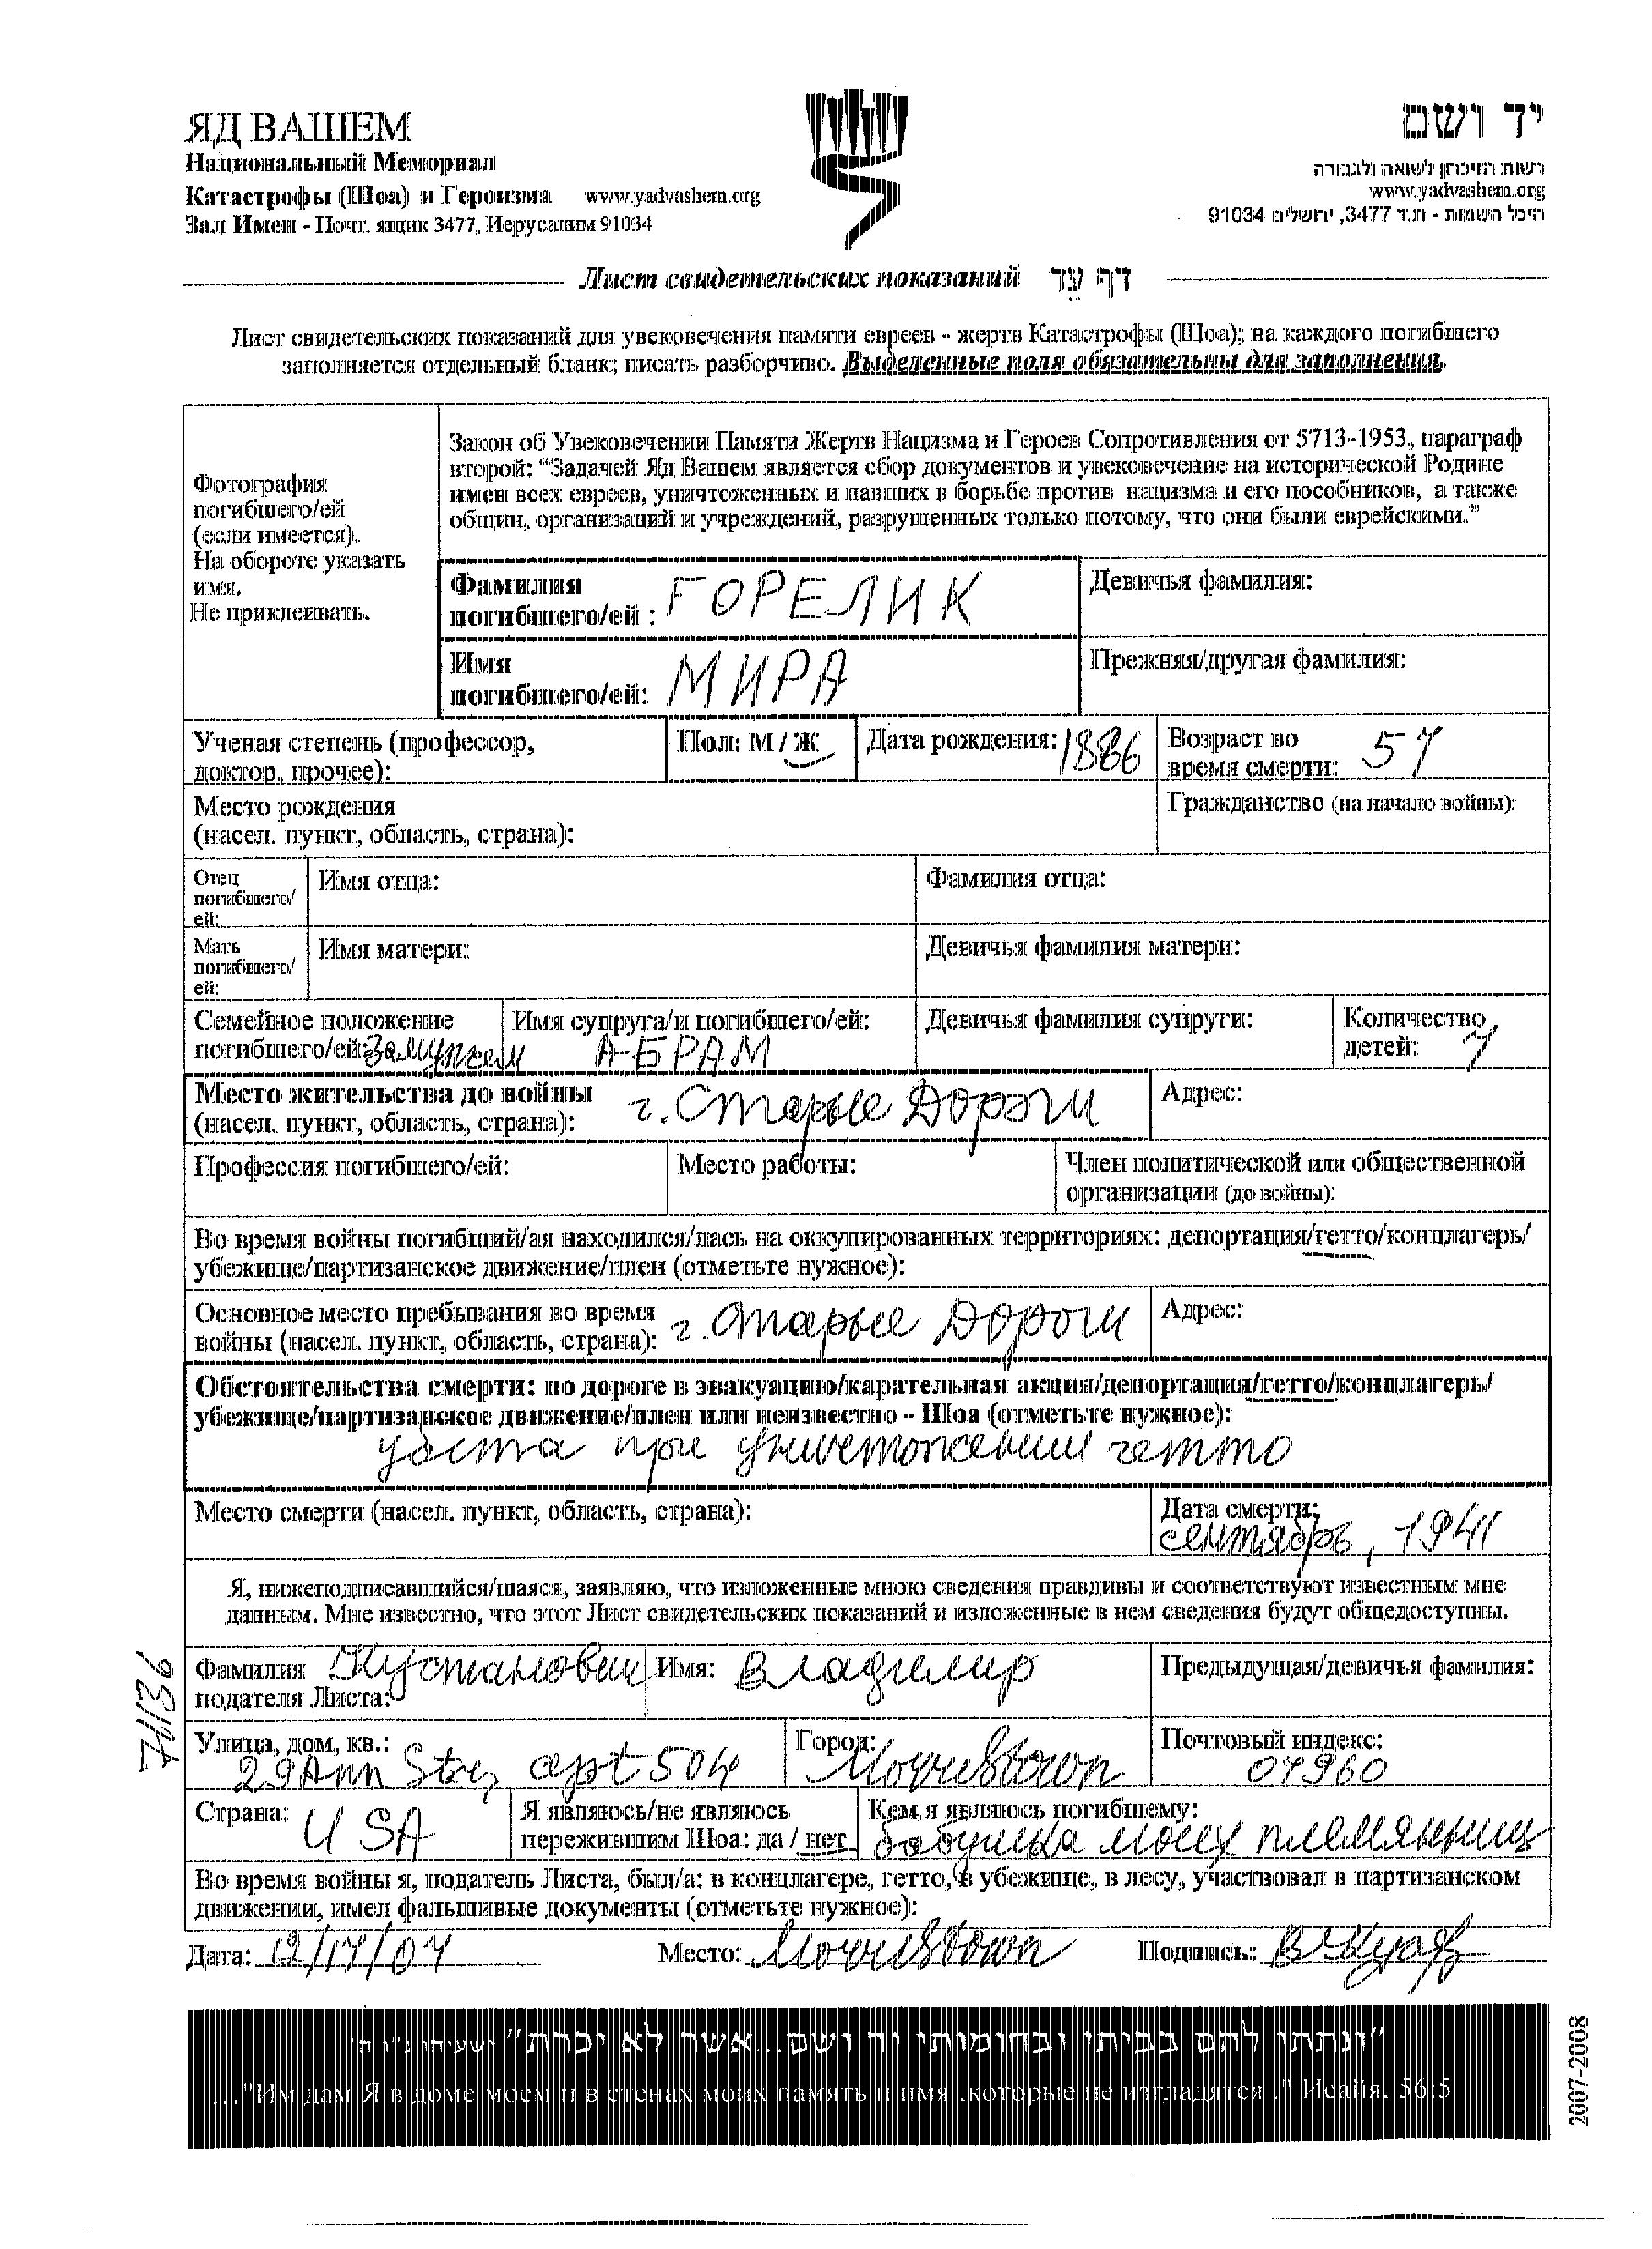 ЯД ВАШЕМ
Национальный Мемориал
Катастрофы (Шоа) и Героизма www.yadvashem.org
Зал Имен - Почт. ящик 3477, Иерусалим 91034
יד ושם
רשות הזיכרון לשואה ולגבורה
www.yadvashem.org
היכל השמות - ת.ד 3477, ירושלים 91034
Лист свидетельских показаний דף עֵד
Лист свидетельских показаний для увековечения памяти евреев - жертв Катастрофы (Шоа); на каждого погибшего
заполняется отдельный бланк; писать разборчиво. Выделенные поля обязательны для заполнения.
Фотография
погибшего/ей
(если имеется).
На обороте указать
имя.
Не приклеивать.
Закон об Увековечении Памяти Жертв Нацизма и Героев Сопротивления от 5713-1953, параграф
второй: “Задачей Яд Вашем является сбор документов и увековечение на исторической Родине
имен всех евреев, уничтоженных и павших в борьбе против нацизма и его пособников, а также
общин, организаций и учреждений, разрушенных только потому, что они были еврейскими.”
Фамилия
погибшего/ей : ГОРЕЛИК
Девичья фамилия:
Имя
погибшего/ей: МИРА
Прежняя/другая фамилия:
Ученая степень (профессор,
доктор, прочее):
Пол: М / Ж
Дата рождения: 1886
Возраст во
время смерти: 57
Место рождения
(насел. пункт, область, страна):
Гражданство (на начало войны):
Отец
погибшего/
ей:
Имя отца:
Фамилия отца:
Мать
погибшего/
ей:
Имя матери:
Девичья фамилия матери:
Семейное положение
погибшего/ей: замужем
Имя супруга/и погибшего/ей:
АБРАМ
Девичья фамилия супруги:
Количество
детей: 7
Место жительства до войны
(насел. пункт, область, страна): г. Старые Дороги
Адрес:
Профессия погибшего/ей:
Место работы:
Член политической или общественной
организации (до войны):
Во время войны погибший/ая находился/лась на оккупированных территориях: депортация/гетто/концлагерь/
убежище/партизанское движение/плен (отметьте нужное):
Основное место пребывания во время
войны (насел. пункт, область, страна): г. Старые Дороги
Адрес:
Обстоятельства смерти: по дороге в эвакуацию/карательная акция/депортация/гетто/концлагерь/
убежище/партизанское движение/плен или неизвестно - Шоа (отметьте нужное):
убита при уничтожении гетто
Место смерти (насел. пункт, область, страна):
Дата смерти:
сентябрь, 1941
Я, нижеподписавшийся/шаяся, заявляю, что изложенные мною сведения правдивы и соответствуют известным мне
данным. Мне известно, что этот Лист свидетельских показаний и изложенные в нем сведения будут общедоступны.
Фамилия
подателя Листа: Кустанович
Имя: Владимир
Предыдущая/девичья фамилия:
Улица, дом, кв.:
29 Ann Str, apt 504
Город:
Morristown
Почтовый индекс:
07960
Страна: USA
Я являюсь/не являюсь
пережившим Шоа: да / нет
Кем я являюсь погибшему:
бабушка моих племянниц
Во время войны я, податель Листа, был/а: в концлагере, гетто, в убежище, в лесу, участвовал в партизанском
движении, имел фальшивые документы (отметьте нужное):
Дата: 12/17/07 Место: Morristown Подпись:
"ונתתי להם בביתי ובחומותי יד ושם...אשר לא יכרת" ישעיהו נ"ו ה'
..."Им дам Я в доме моем и в стенах моих память и имя ,которые не изгладятся ." Исайя, 56:5
2007-2008